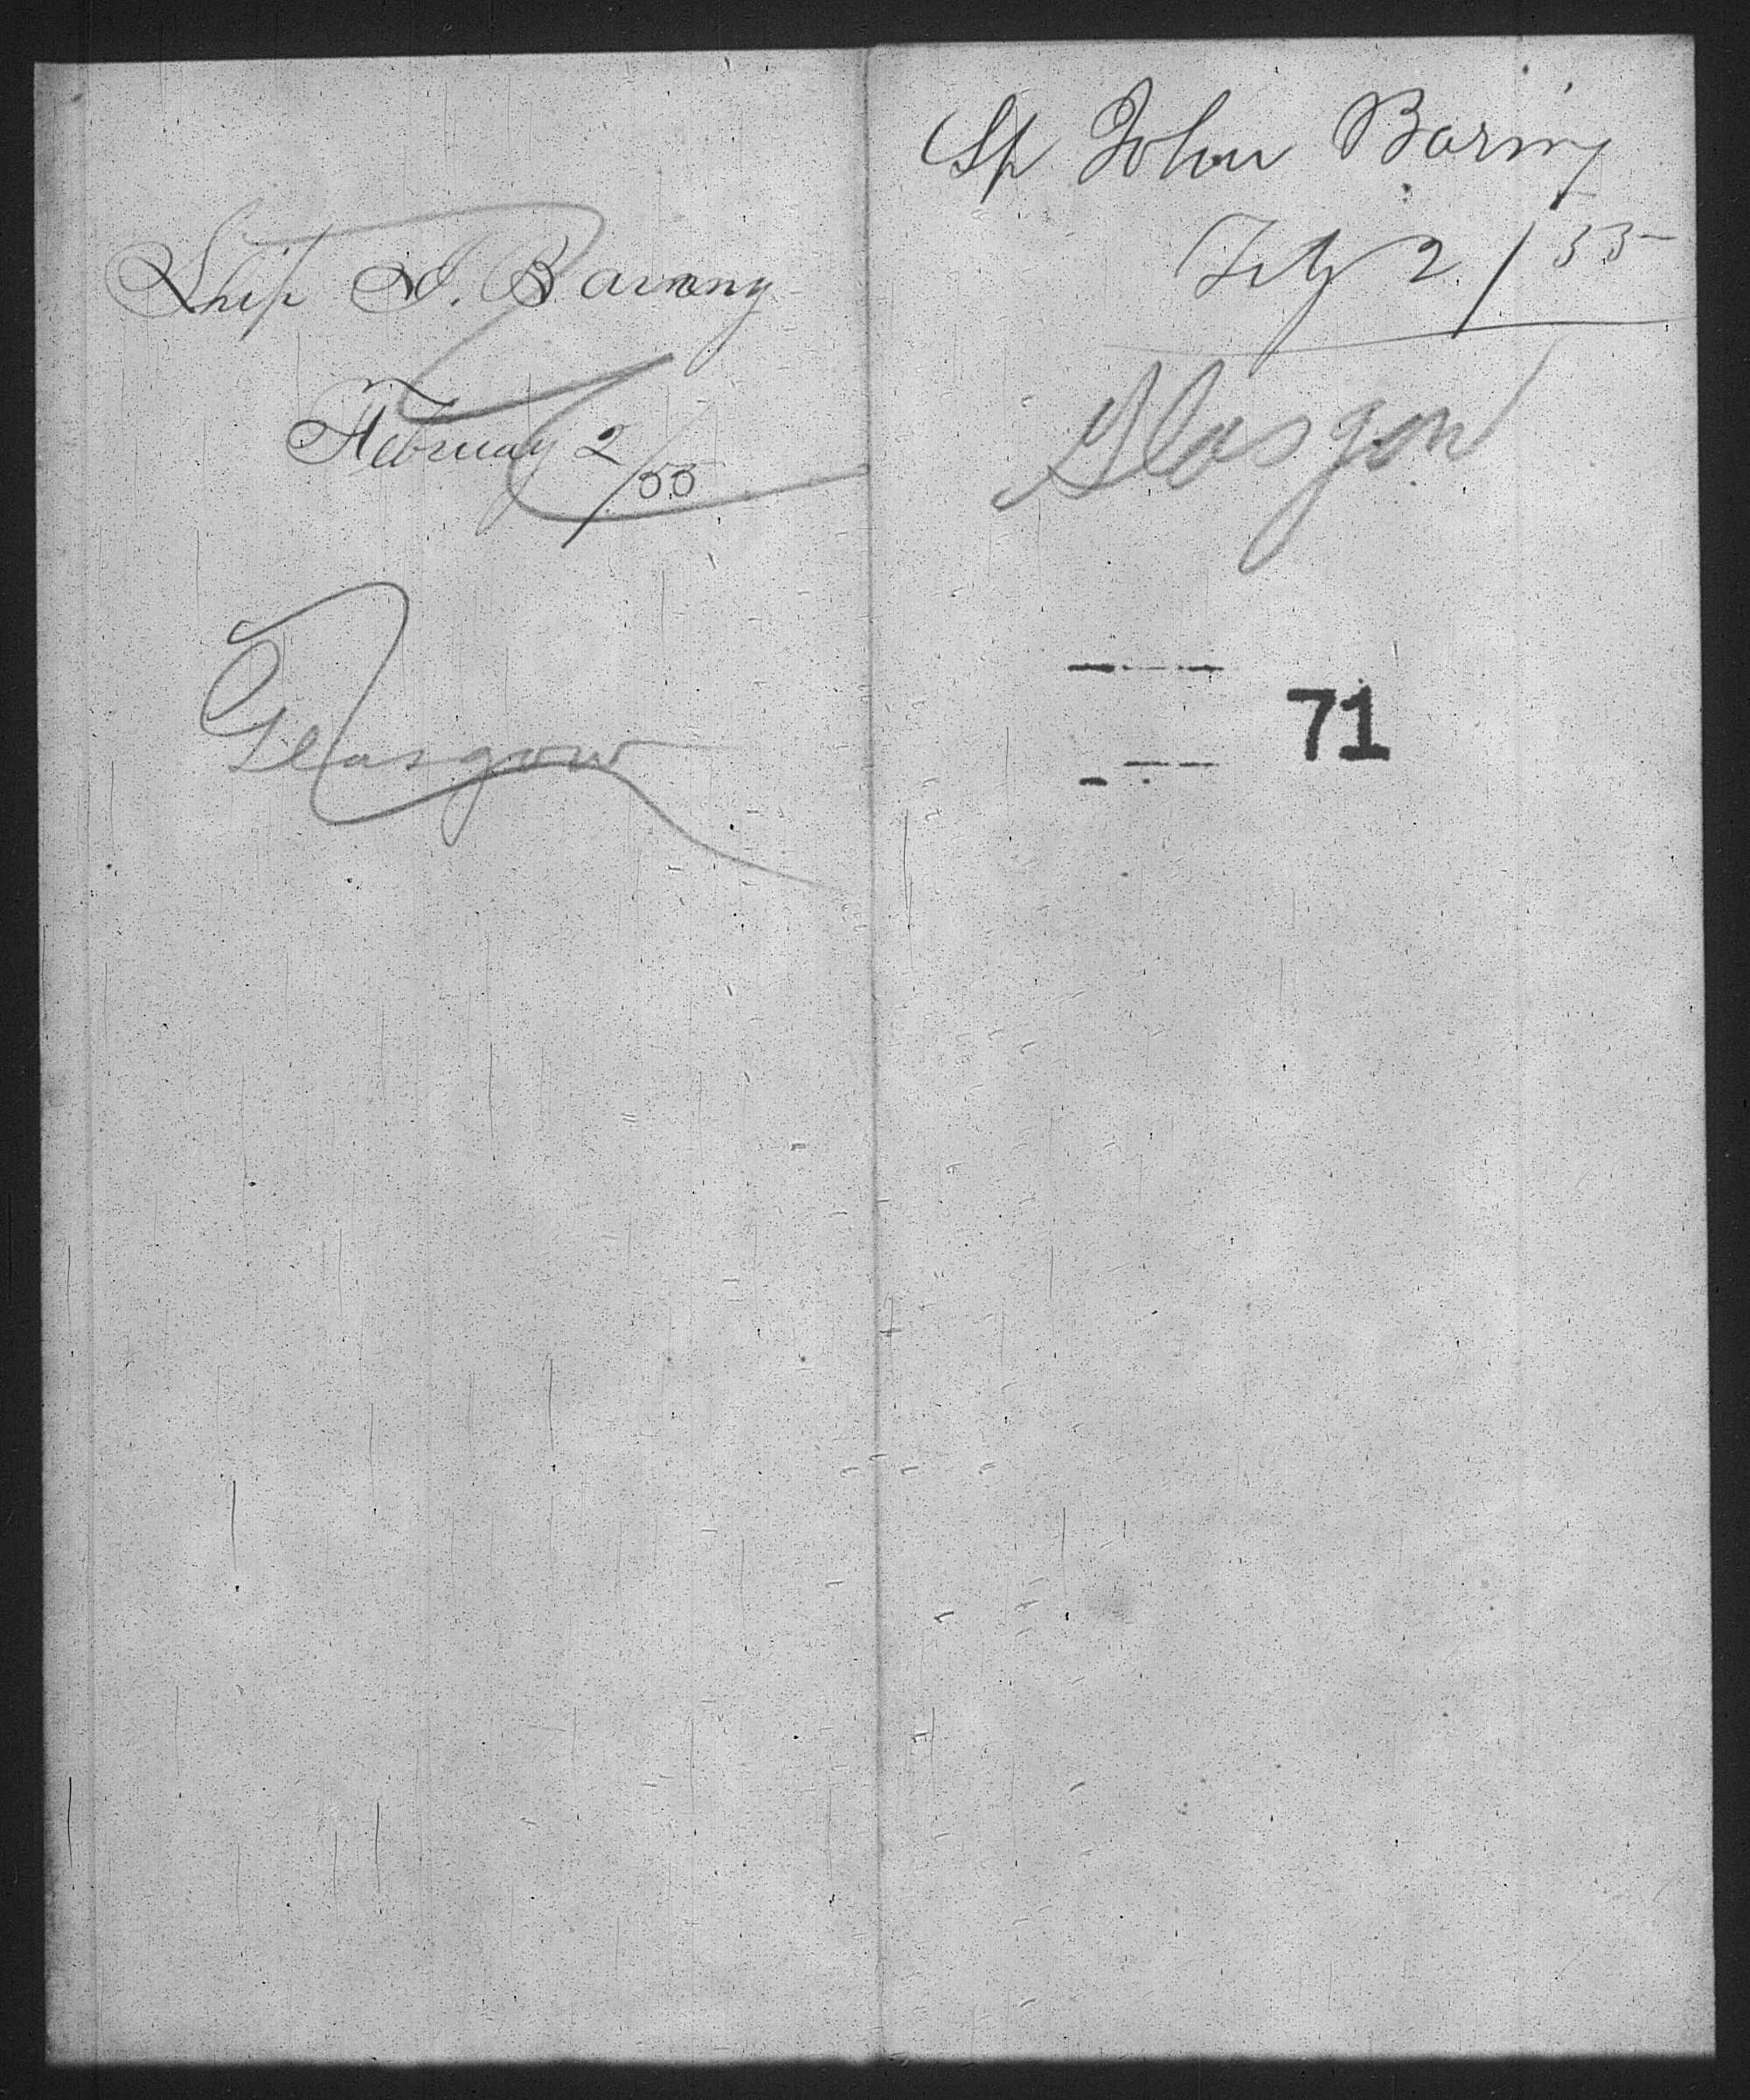 Ship J. Baring
February 2/55
Glasgow
Sp John Baring
Feby 2/55
Glasgow
71